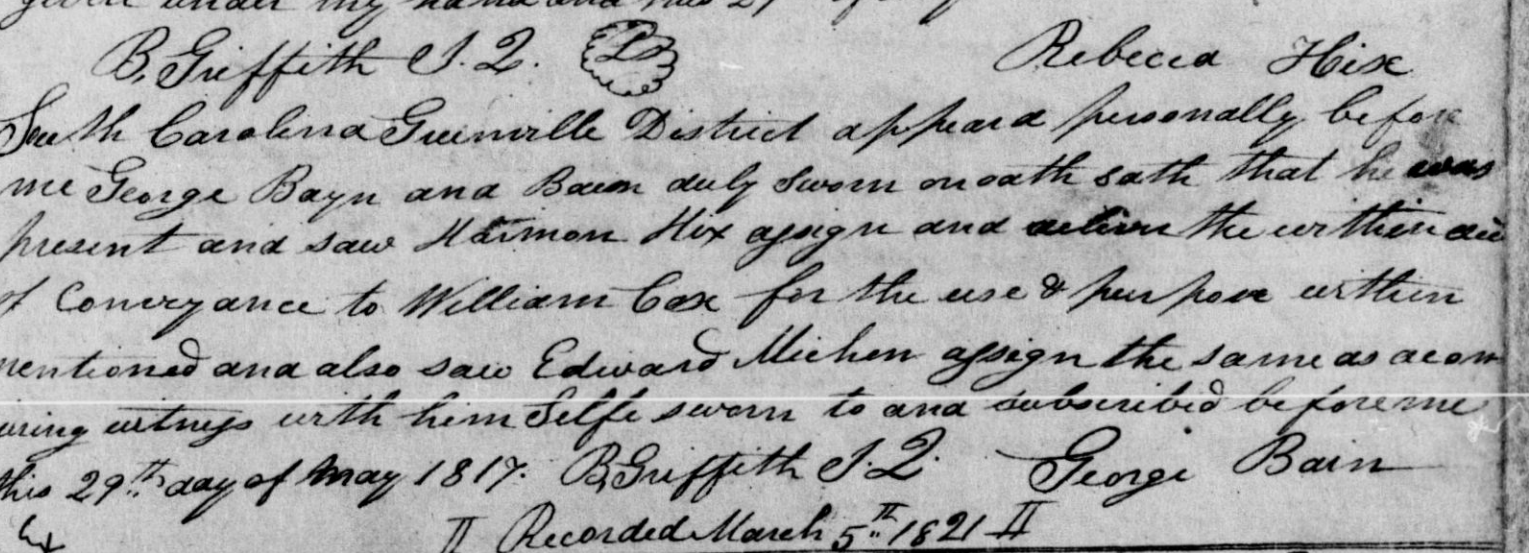 given under my hand and this 29
B. Griffith J. Q. LS Rebecca Hix
South Carolina Greenville District appeard personally before
me George Bayn and Baem duly sworn on oath sath that he was
present and saw Harmon Hix assign and deliver the within
of Conveyance to William Cox for the use & purpose within
mentioned and also saw Edward Michen assign the same as a com
witness with him Selfe sworn to and subscribed before me
this 29th day of May 1817. B. Griffith J. Q. George Bain
Recorded March 5th 1821